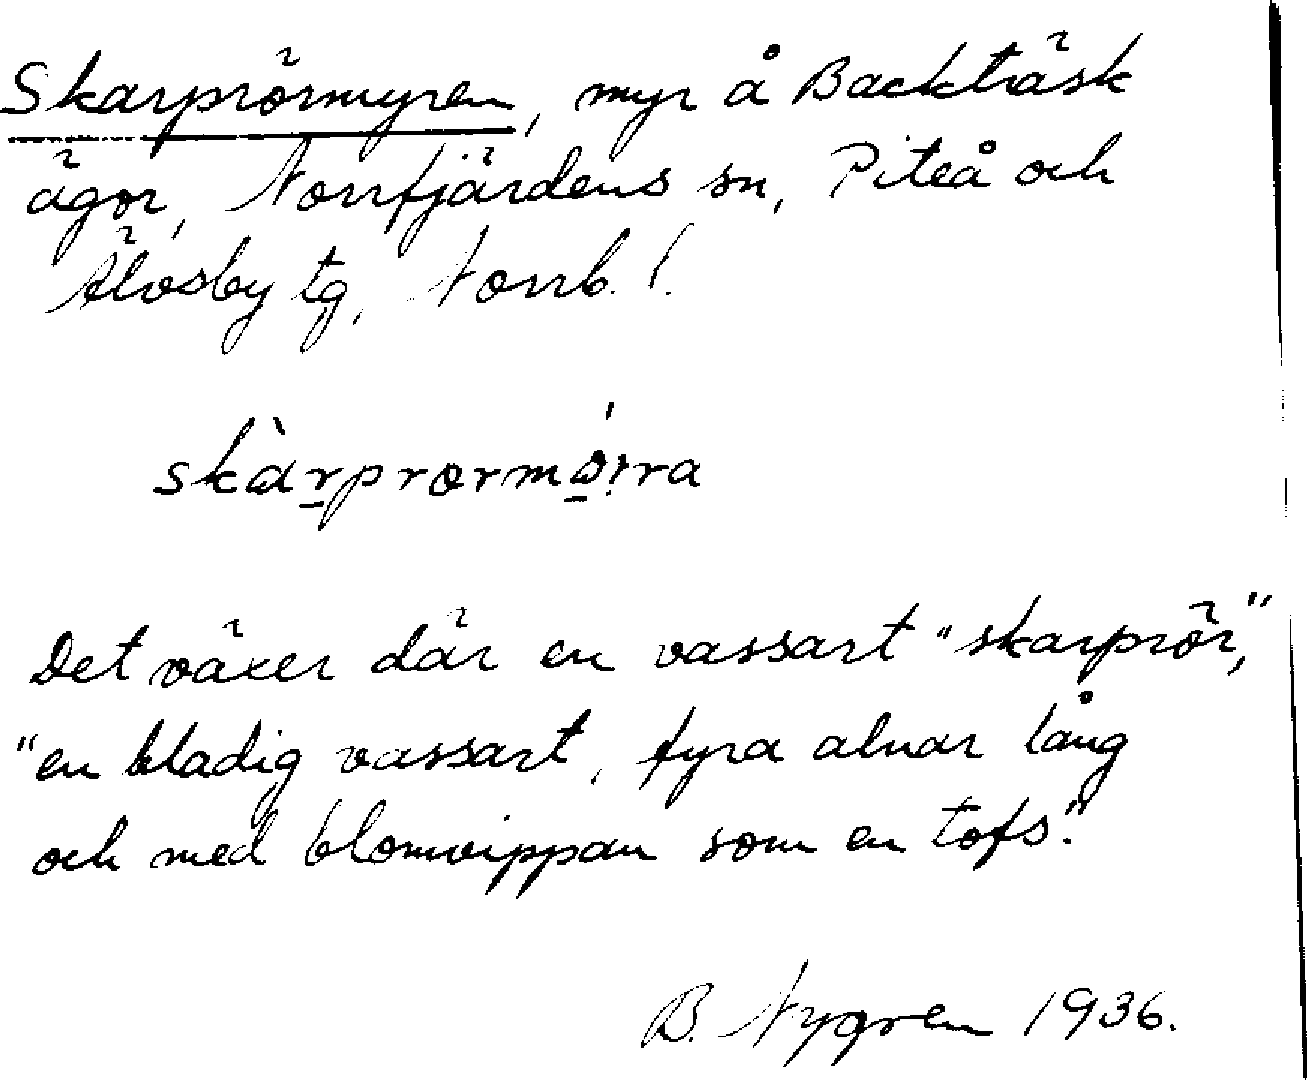 Skarprörmyren, myr å Backträsk
ägor, Norrfjärdens sn, Piteå och
Älvsby tg, Norrb. l.
skàrprœrmö́rra
Det växer där en vassart "skarprör,"
"en bladig vassart, fyra alnar lång
och med blomvippan som en tofs."
B. Nygren 1936.